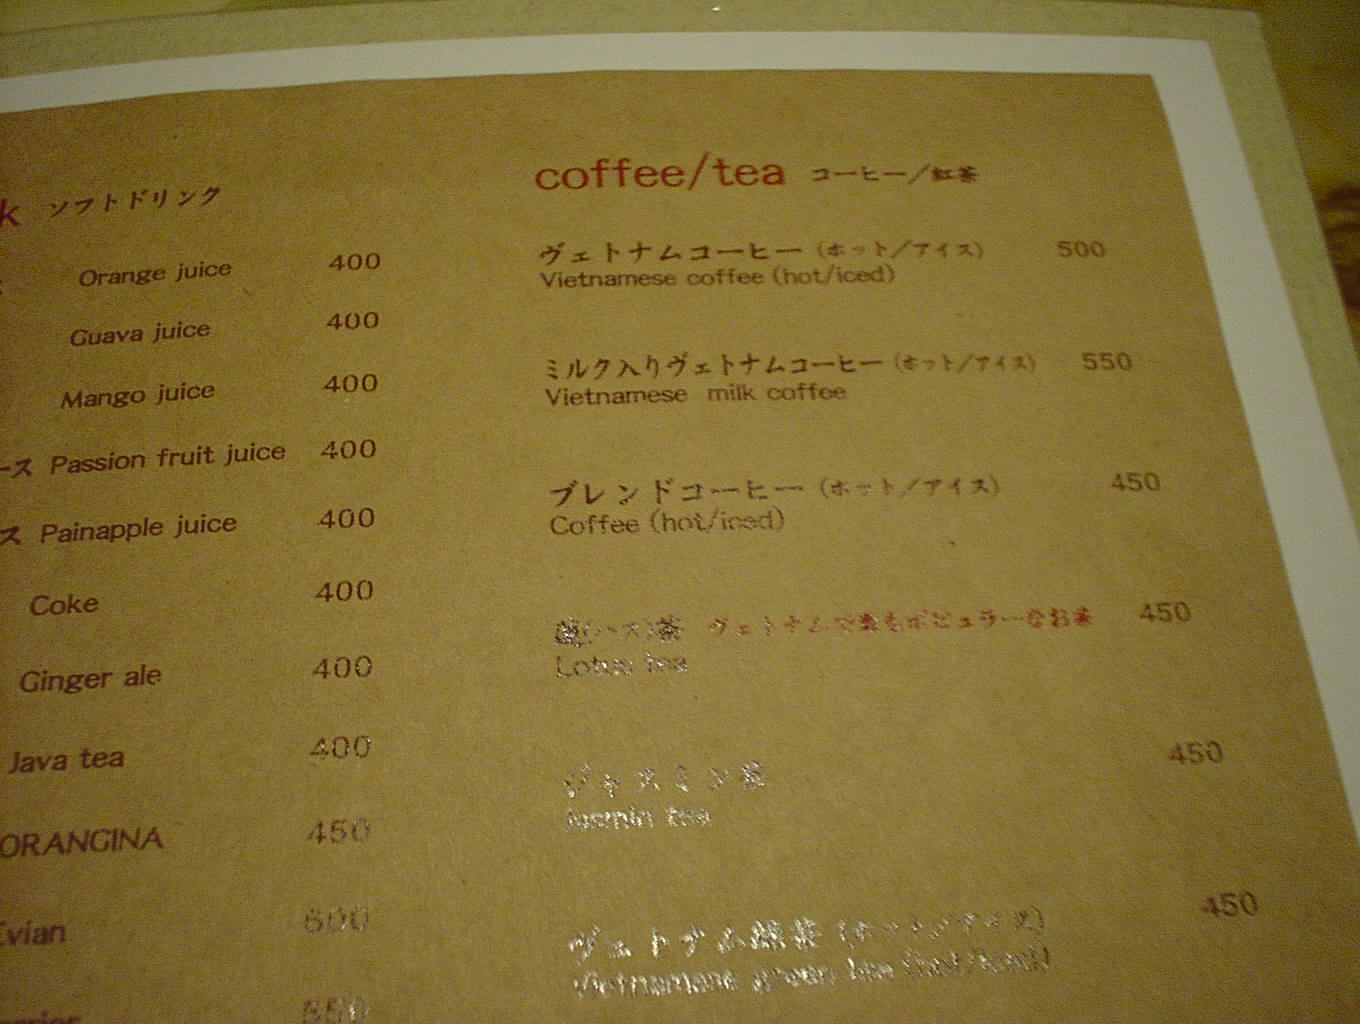 ソフトドリンク
Orange juice 400
Guava juice 400
Mango juice 400
ース Passion fruit juice 400
ス Painapple juice 400
Coke 400
Ginger ale 400
Java tea 400
ORANGINA 450
Evian 600
550
coffee/tea コーヒー/紅茶
ヴェトナムコーヒー (ホット/アイス) 500
Vietnamese coffee (hot/iced)
ミルク入りヴェトナムコーヒー (ホット/アイス) 550
Vietnamese milk coffee
ブレンドコーヒー (ホット/アイス) 450
Coffee (hot/iced)
蓮(ハス)茶 ヴェトナムで最もポピュラーなお茶 450
Lotus tea
ジャスミン茶 450
Jasmin tea
ヴェトナム緑茶 (ホット/アイス) 450
Vietnamese green tea (hot/iced)